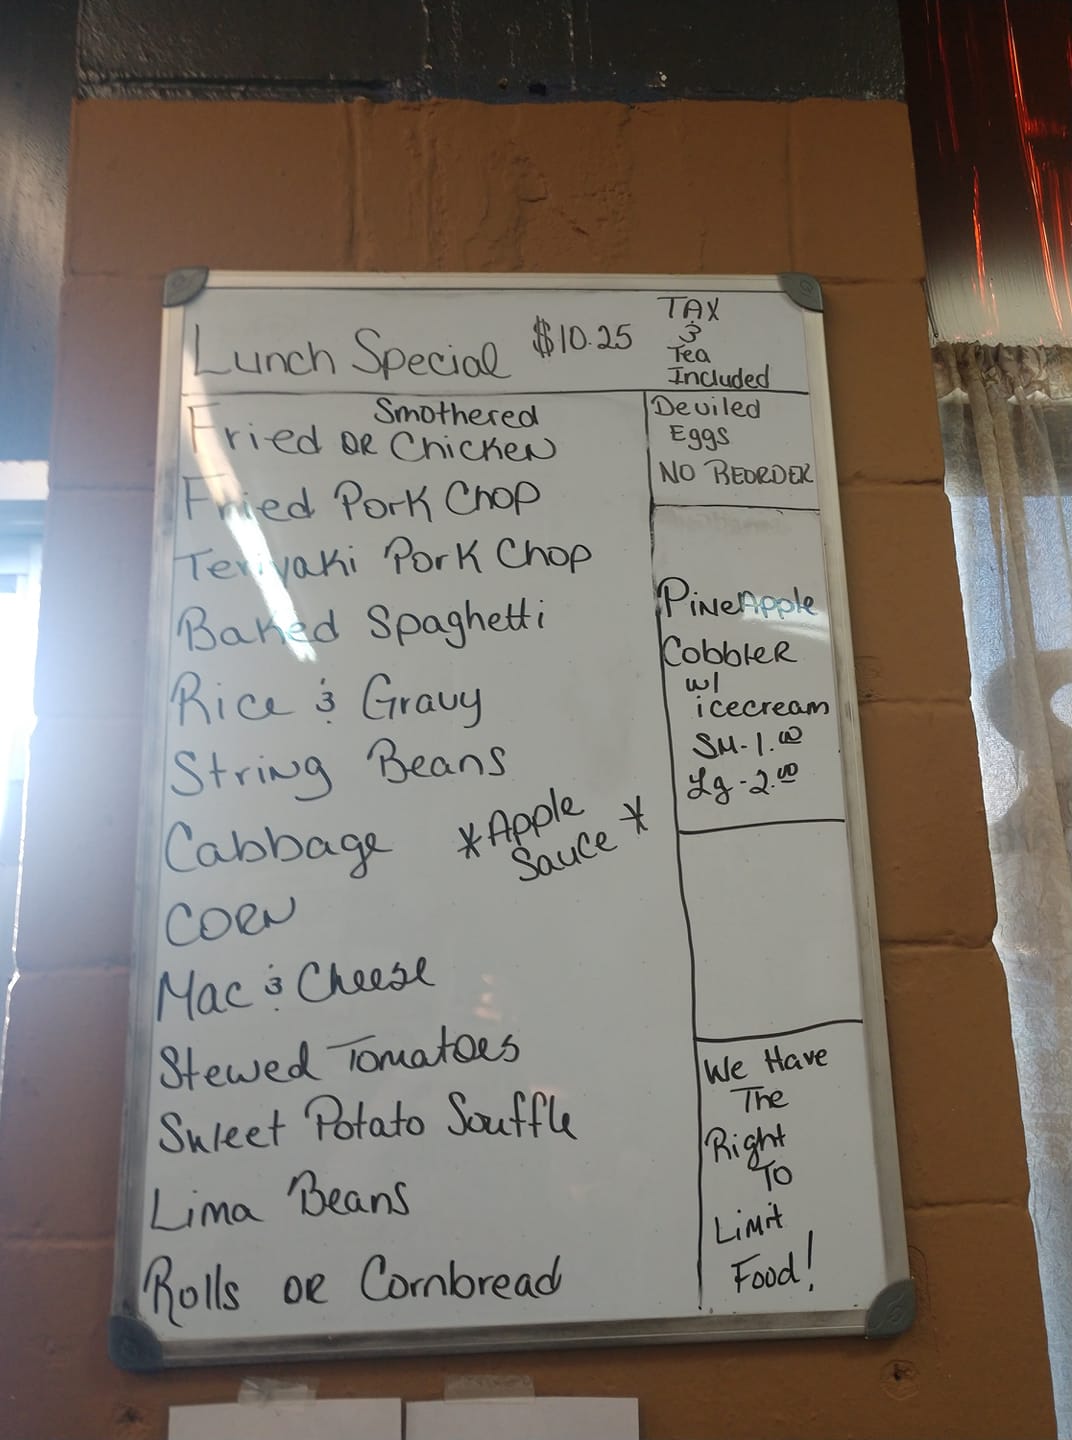 Lunch Special $10.25
TAX
&
Tea
Included
Smothered
Fried OR Chicken
Fried Pork Chop
Teriyaki Pork Chop
Baked Spaghetti
Rice & Gravy
String Beans
Cabbage
*Apple
Sauce*
CORN
Mac & Cheese
Stewed Tomatoes
Sweet Potato Souffle
Lima Beans
Rolls OR Cornbread
Deviled
Eggs
NO REORDER
PineApple
CobbleR
w/
icecream
SM-1.00
Lg-2.00
We Have
The
Right
To
Limit
Food!